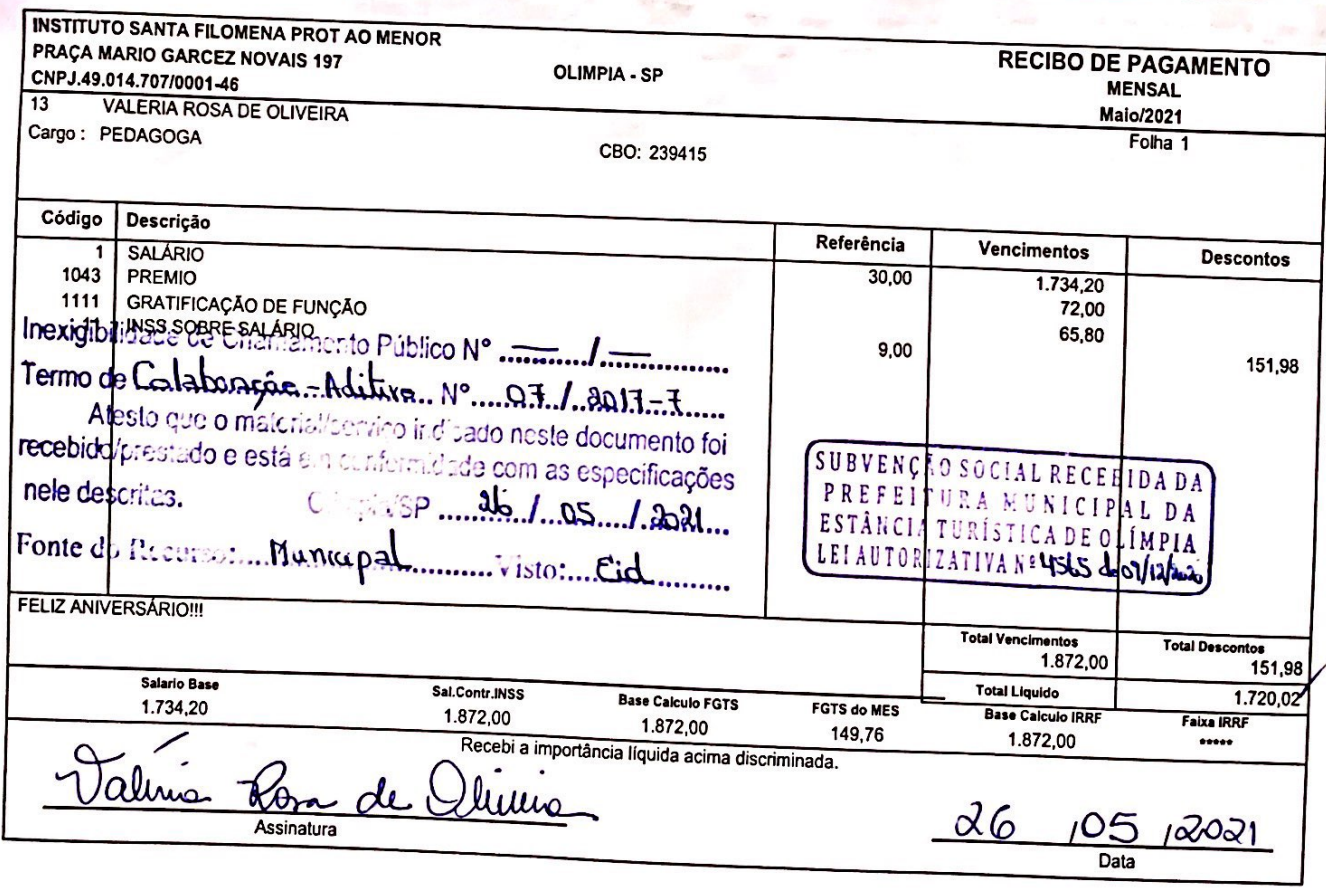 INSTITUTO SANTA FILOMENA PROT AO MENOR
PRAÇA MARIO GARCEZ NOVAIS 197
CNPJ.49.014.707/0001-46
OLIMPIA - SP
RECIBO DE PAGAMENTO
MENSAL
Maio/2021
13 VALERIA ROSA DE OLIVEIRA
Cargo : PEDAGOGA
CBO: 239415
Folha 1
Código Descrição Referência Vencimentos Descontos
1 SALÁRIO 30,00 1.734,20
1043 PREMIO 72,00
1111 GRATIFICAÇÃO DE FUNÇÃO 65,80
INSS SOBRE SALÁRIO 9,00 151,98
Inexigibilidade de Chamamento Público Nº ........../..............
Termo de Colaboração - Aditivo.. Nº.....07./..2017-7.....
Atesto que o material/serviço indicado neste documento foi
recebido/prestado e está em conformidade com as especificações
nele descritas.
Olímpia/SP .....26../...05..../.2021...
Fonte do Recurso:....Municipal............Visto:....Eid..........
SUBVENÇÃO SOCIAL RECEBIDA DA
PREFEITURA MUNICIPAL DA
ESTÂNCIA TURÍSTICA DE OLÍMPIA
LEI AUTORIZATIVA Nº 4565 de 09/12/2020
FELIZ ANIVERSÁRIO!!!
Total Vencimentos Total Descontos
1.872,00 151,98
Total Liquido 1.720,02
Salario Base Sal.Contr.INSS Base Calculo FGTS FGTS do MES Base Calculo IRRF Faixa IRRF
1.734,20 1.872,00 1.872,00 149,76 1.872,00 *****
Recebi a importância líquida acima discriminada.
Valéria Rosa de Oliveira
Assinatura
26 /05 /2021
Data